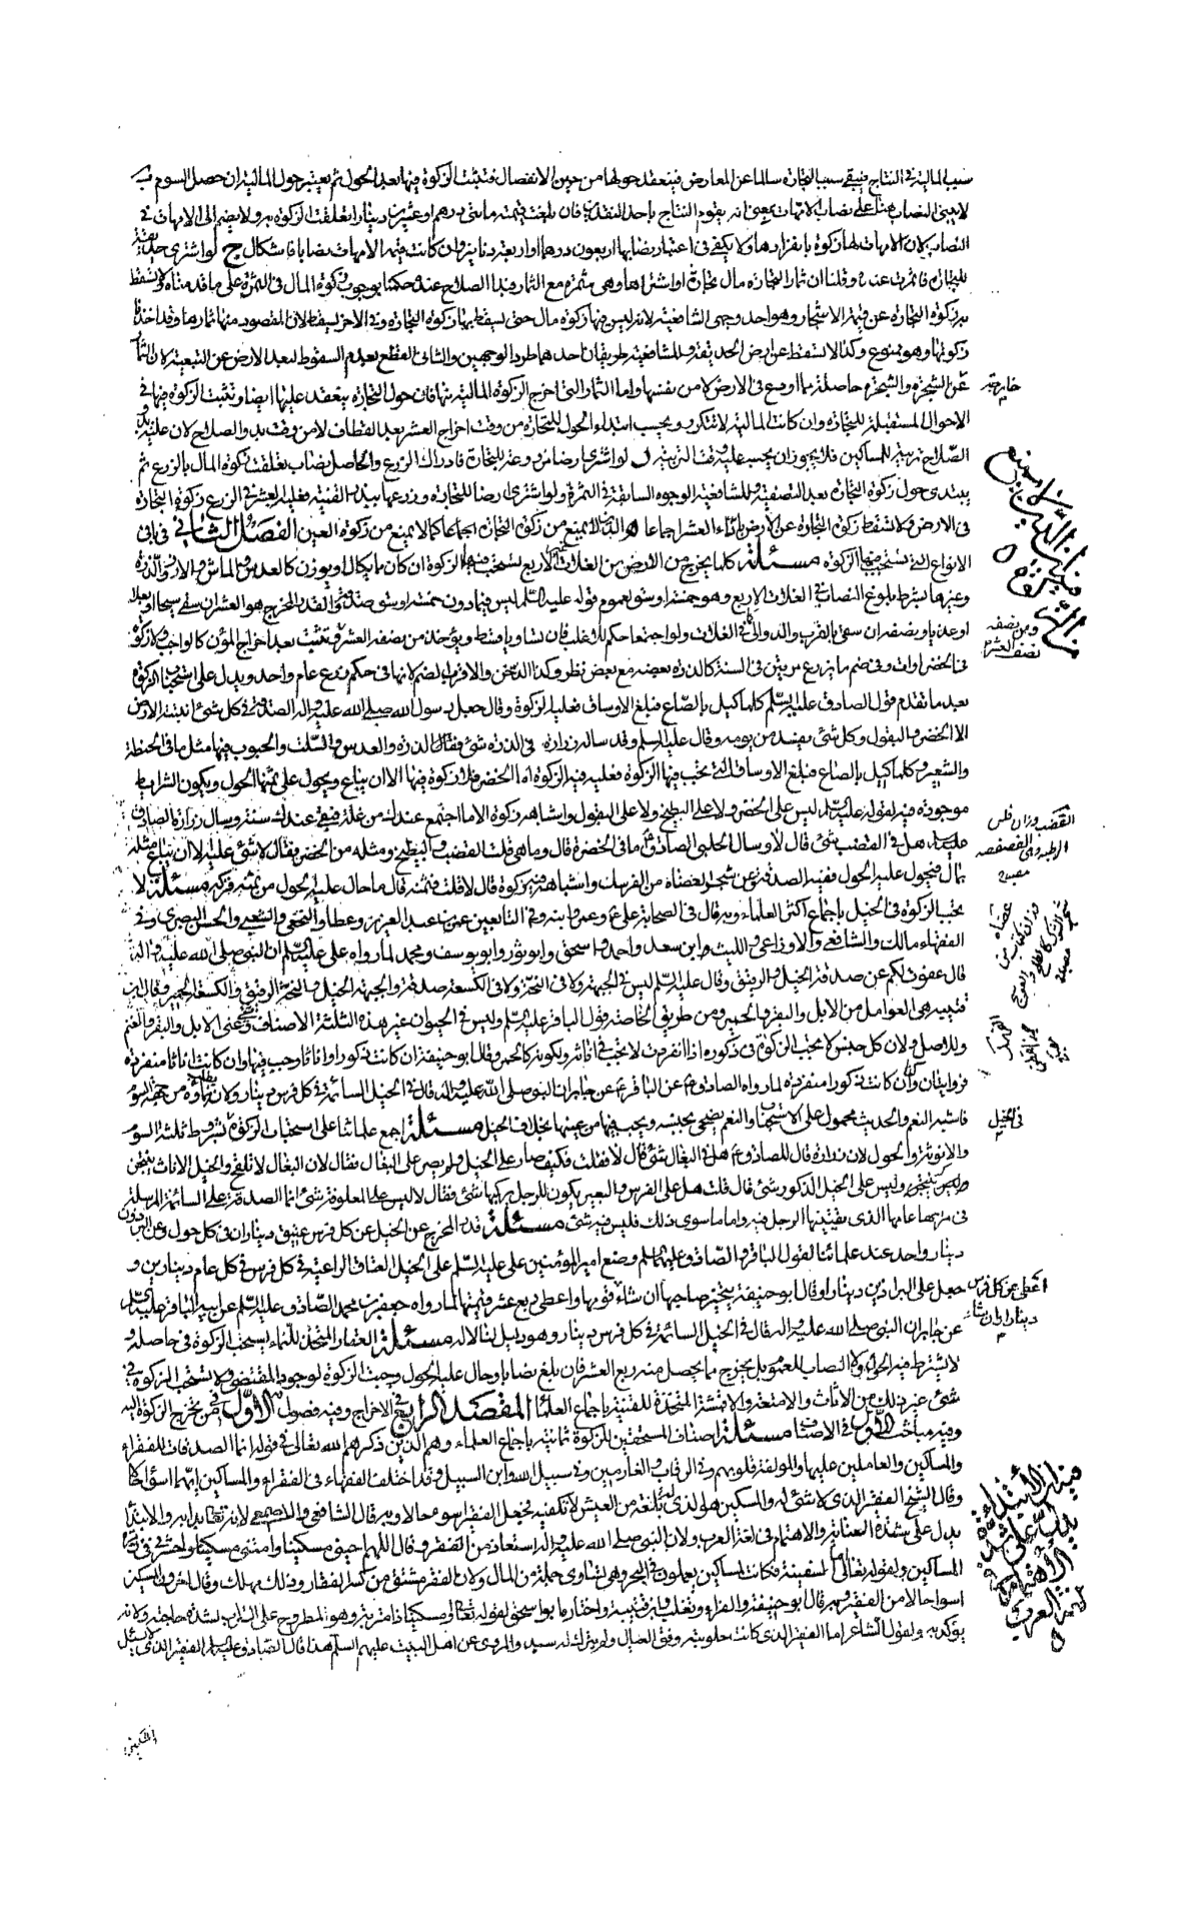 سبب المالية في النتاج فيبقى سبب التجارة سالما عن المعارض فينعقد حولها من حين الانفصال فتثبت الزكوة فيها بعد الحول ثم يعتبر حول المالية ان حصل السوم ب
لا يبنى النصاب هنا على نصاب الامهات بمعنى انه يقوم النتاج باحد النقدين فان بلغت قيمته مائتي درهم او عشرين دينارا تعلقت الزكوة به ولا يضم الى الامهات في
النصاب لان الامهات لها زكوة بانفرادها ولا يكفي في اعتبار نصابها اربعون درهما او اربعة دنانير وان كانت قيمة الامهات نصابا فاشكال ج لو اشترى حديقة
للتجارة فاثمرت عنده وقلنا ان ثمار التجارة مال تجارة او اشتراها وهي مثمرة مع الثمار فبدا الصلاح عنده حكمنا بوجوب زكوة المال في الثمرة على ما قدمناه ولا تسقط
به زكوة التجارة عن قيمة الاشجار وهو احد وجهي الشافعية لانه ليس فيها زكوة مال حتى يسقط بها زكوة التجارة وفي الاخر يسقط لان المقصود منها ثمارها وقد اخذنا
زكوتها وهو ممنوع وكذا لا تسقط عن ارض الحديقة وللشافعية طريقان احدهما طرد الوجهين والثاني القطع بعدم السقوط لبعد الارض عن التبعية لان الثمار
خارجة
عن الشجرة والشجرة حاصلة مما اودع في الارض لا من نفسها واما الثمار التي اخرج الزكوة المالية منها فان حول التجارة ينعقد عليها ايضا وتثبت الزكوة فيها في
الاحوال المستقبلة للتجارة وان كانت المالية لا تتكرر ويحسب ابتداء الحول للتجارة من وقت اخراج العشر بعد القطاف لا من وقت بدو الصلاح لان عليه بدو
الصلاح تربية للمساكين فلا يجوز ان يحسب عليه وقت التربية د لو اشترى ارضا مزروعة للتجارة فادرك الزرع والحاصل نصاب تعلقت زكوة المال بالزرع ثم
يبتدئ حول زكوة التجارة بعد التصفية وللشافعية الوجوه السابقة في الثمرة ولو اشترى ارضا للتجارة وزرعها ببذر القنية فعليه العشر في الزرع زكوة التجارة
في الارض ولا تسقط زكوة التجارة عن الارض باداء العشر اجماعا ه الدين لا يمنع من زكوة التجارة اجماعا كما لا يمنع من زكوة العين الفصل الثاني في باقي
الانواع التي تستحب فيها الزكوة مسئلة كلما يخرج من الارض من الغلات غير الاربع يستحب فيها الزكوة ان كان مما يكال او يوزن كالعدس والماش والارز والذرة
وغيرها بشرط بلوغ النصاب في الغلات الاربع وهو خمسة اوسق لعموم قوله عليه السلام ليس فيما دون خمسة اوسق صدقة والقدر المخرج هو العشر ان سقى سيحا او بعلا
ومن نصفه نصف العشر
او عذيا ونصفه ان سقى بالغرب والدوالي كما في الغلات ولو اجتمعا حكم للاغلب فان تساويا قسط ويؤخذ من نصفه العشر وتثبت بعد اخراج المؤن كالواجب ولا زكوة
في الخضراوات وفي ضم ما يزرع مرتين في السنة كالذرة بعضه مع بعض نظر وكذا الدخن والاقرب الضم لانها في حكم زرع عام واحد ويدل على استحباب الزكوة
بعد ما تقدم قول الصادق عليه السلام كلما كيل بالصاع فبلغ الاوساق فعليه الزكوة وقال جعل رسول الله صلى الله عليه واله الصدقة في كل شئ انبتته الارض
الا الخضر والبقول وكل شئ يفسد من يومه وقال عليه السلم وقد ساله زرارة في الذرة شئ فقال الذرة والعدس والسلت والحبوب فيها مثل ما في الحنطة
والشعير وكلما كيل بالصاع فبلغ الاوساق التي تجب فيها الزكوة فعليه فيه الزكوة اما الخضر فلا زكوة فيها الا ان يباع ويحول على ثمنها الحول ويكون الشرايط
موجودة فيه لقوله عليه السلام ليس على الخضر ولا على البطيخ ولا على البقول واشباهه زكوة الا ما اجتمع عندك من غلته فبقي عندك سنة وسال زرارة الصادق
عليه السلام هل في القضب شئ قال لا وسال الحلبي الصادق ع ما في الخضرة قال وما هي قلت القضب والبطيخ ومثله من الخضر فقال لا شئ عليه الا ان يباع مثله
بمال فيحول عليه الحول ففيه الصدقة وعن شجر العضاه من الفرسك واشباهه فيه زكوة قال لا قلت فثمنه قال ما حال عليه الحول من ثمنه فزكه مسئلة لا
تجب الزكوة في الخيل باجماع اكثر العلماء وبه قال في الصحابة علي ع وعمر وابنه وفي التابعين عمر بن عبد العزيز وعطا والنخعي والشعبي والحسن البصري وفي
الفقهاء مالك والشافعي والاوزاعي والليث وابن سعد واحمد واسحق وابو ثور وابو يوسف ومحمد لما رواه علي عليه السلم ان النبي صلى الله عليه واله
قال عفوت لكم عن صدقة الخيل والرقيق وقال عليه السلم ليس في الجبهة ولا في النخة ولا في الكسعة صدقة والجبهة الخيل والنخة الرقيق والكسعة الحمير وقال ابن
قتيبة هي العوامل من الابل والبقر والحمير ومن طريق الخاصة قول الباقر عليه السلم وليس في الحيوان غير هذه الثلثة الاصناف شئ وعنى الابل والبقر والغنم
وللاصل ولان كل جنس لا يجب الزكوة في ذكوره اذا انفردت لا تجب في اناثه وبكونه كالحمر وقال ابو حنيفة ان كانت ذكورا واناثا وجب فيها وان كانت اناثا منفردة
فروايتان وكذا ان كانت ذكورا منفردة لما رواه الصادق ع عن الباقر ع عن جابر ان النبي صلى الله عليه واله قال في الخيل السائمة في كل فرس دينار ولانه يطلب نماؤه من جهة السوم
في الخيل
فاشبه النعم والحديث محمول على الاستحباب والنعم يضحى بجنسه ويجب فيها من عينها بخلاف الخيل مسئلة اجمع علمائنا على استحباب الزكوة بشروط ثلثة السوم
والانوثة والحول لان زرارة قال للصادق ع هل في البغال شئ قال لا فقلت فكيف صار على الخيل ولم يصر على البغال فقال لان البغال لا تلقح والخيل الاناث ينتجن
وليس على الخيل الذكور شئ قال قلت هل على الفرس والبعير يكون للرجل يركبها شئ فقال لا ليس على المعلوفة شئ انما الصدقة على السائمة المرسلة
في مرجها عامها الذي يقتنيها الرجل فيه واما ما سوى ذلك فليس فيه شئ مسئلة قدر المخرج عن الخيل عن كل فرس عتيق ديناران في كل حول وعن البرذون
دينار واحد عند علمائنا لقول الباقر والصادق عليهما السلم وضع امير المؤمنين علي عليه السلم على الخيل العتاق الراعية في كل فرس في كل عام دينارين و
جعل على البراذين دينارا وقال ابو حنيفة يتخير صاحبها ان شاء قومها واعطى ربع عشر قيمتها لما رواه جعفر بن محمد الصادق عليه السلم عن ابيه الباقر عليه السلم
اعطى عن كل فرس دينارا وان شاء
عن جابر ان النبي صلى الله عليه واله قال في الخيل السائمة في كل فرس دينار وهو دليل لنا لا له مسئلة العقار المتخذ للنماء يستحب الزكوة في حاصله و
لا يشترط فيه الحول ولا النصاب للعموم بل يخرج مما يحصل منه ربع العشر فان بلغ نصابا وحال عليه الحول وجبت الزكوة لوجود المقتضي ولا تستحب الزكوة في
شئ غير ذلك من الاثاث والامتعة والاقمشة المتخذة للقنية باجماع العلماء المقصد الرابع في الاخراج وفيه فصول الاول فيمن يخرج الزكوة اليه
وفيه مباحث الاول في الاصناف مسئلة اصناف المستحقين للزكوة ثمانية باجماع العلماء وهم الذين ذكرهم الله تعالى في قوله انما الصدقات للفقراء
والمساكين والعاملين عليها والمؤلفة قلوبهم وفي الرقاب والغارمين وفي سبيل الله وابن السبيل وقد اختلف الفقهاء في الفقراء والمساكين ايهما اسوأ حالا
وقال الشيخ الفقير الذي لا شئ له والمسكين هو الذي له بلغة من العيش لا تكفيه فجعل الفقير اسوء حالا وبه قال الشافعي والاصمعي لانه تعالى بدا به والابتداء
يدل على شدة العناية والاهتمام في لغة العرب ولان النبي صلى الله عليه واله استعاذ من الفقر وقال اللهم احيني مسكينا وامتني مسكينا واحشرني في زمرة
المساكين ولقوله تعالى اما السفينة فكانت لمساكين يعملون في البحر وهي تساوي جملة من المال ولان الفقر مشتق من كسر الفقار وذلك يهلك وقال اخرون المسكين
اسوا حالا من الفقير وبه قال ابو حنيفة والفراء وثعلب وابن قتيبة واختاره ابو اسحق لقوله تعالى او مسكينا ذا متربة وهو المطروح على التراب لشدة حاجته ولانه
يؤكد به ولقول الشاعر اما الفقير الذي كانت حلوبته وفق العيال ولم يترك له سبد والمروي عن اهل البيت عليهم السلم هذا قال الصادق عليه السلم الفقير الذي لا يسئل